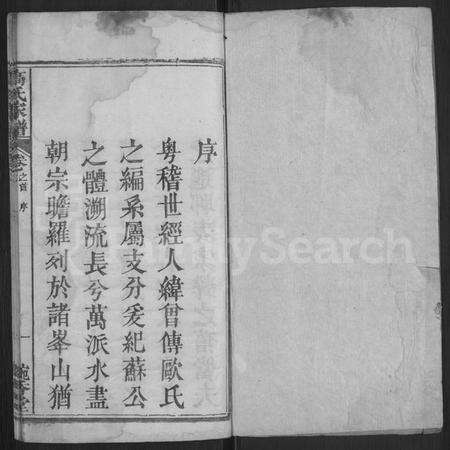 序
粤稽世經人緯曾傳歐氏
之編系屬支分爰紀蘇公
之體溯流長兮萬派水盡
朝宗瞻羅列於諸峯山猶
高氏家譜
卷之首 序
一
FamilySearch